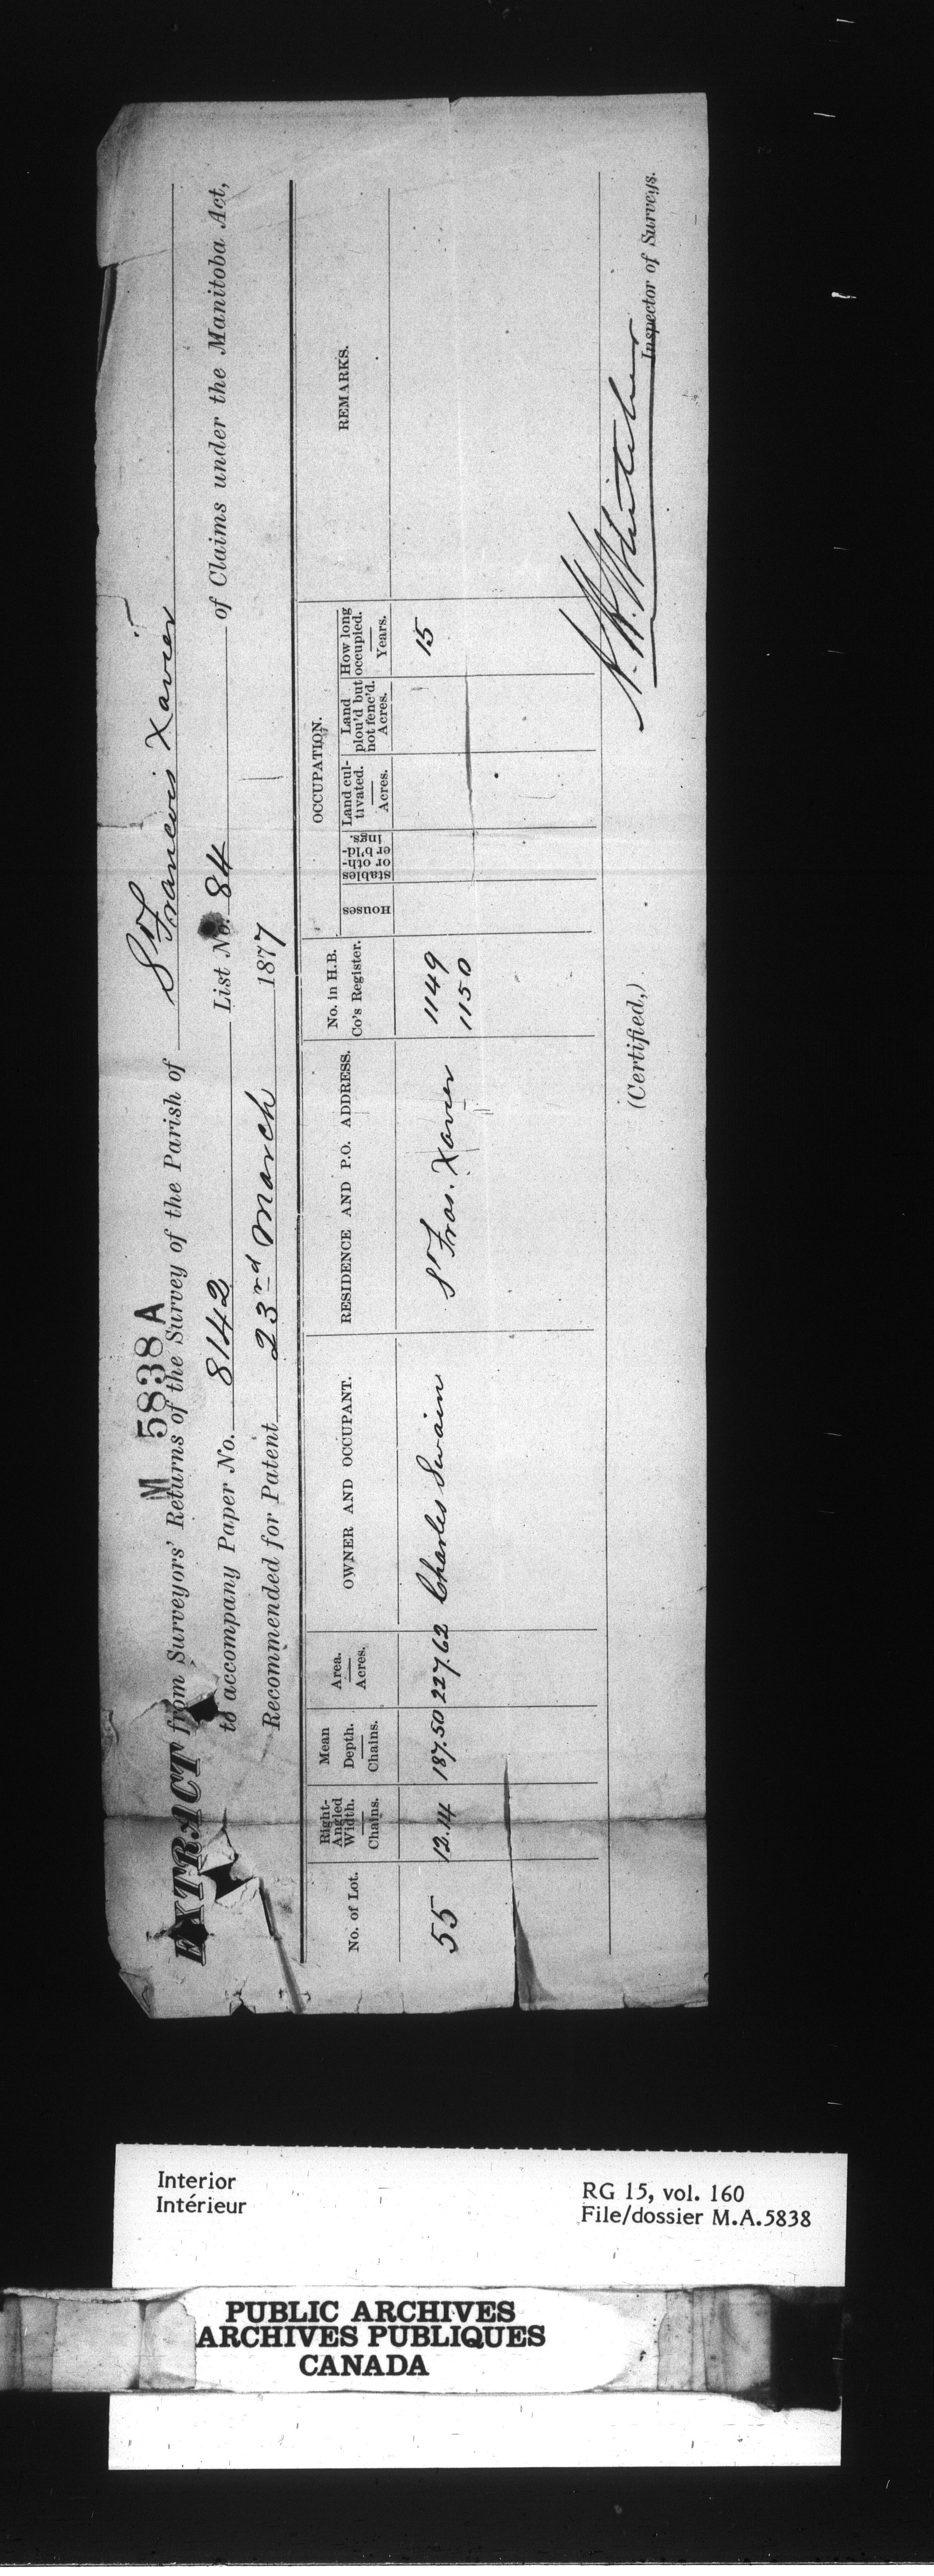 M 5838 A
EXTRACT from Surveyors' Returns of the Survey of the Parish of St Francois Xavier
to accompany Paper No. 8142 List No. 84 of Claims under the Manitoba Act,
Recommended for Patent 23rd March 1877
No. of Lot.
Right-Angled Width. Chains.
Mean Depth. Chains.
Area. Acres.
OWNER AND OCCUPANT.
RESIDENCE AND P.O. ADDRESS.
No. in H.B. Co's Register.
OCCUPATION.
Houses
stables or oth-er b'ld-ings.
Land cul-tivated. Acres.
Land plou'd but not fenc'd. Acres.
How long occupied. Years.
REMARKS.
55 12.14 187.50 227.62 Charles Swain St Fras. Xavier 1149 15
1150
(Certified,)
Inspector of Surveys.
Interior
Intérieur
RG 15, vol. 160
File/dossier M.A.5838
PUBLIC ARCHIVES
ARCHIVES PUBLIQUES
CANADA